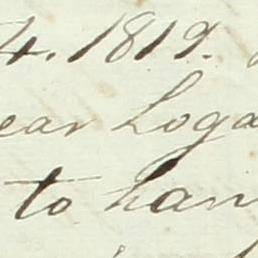 4. 1819.
ear Loga
to han